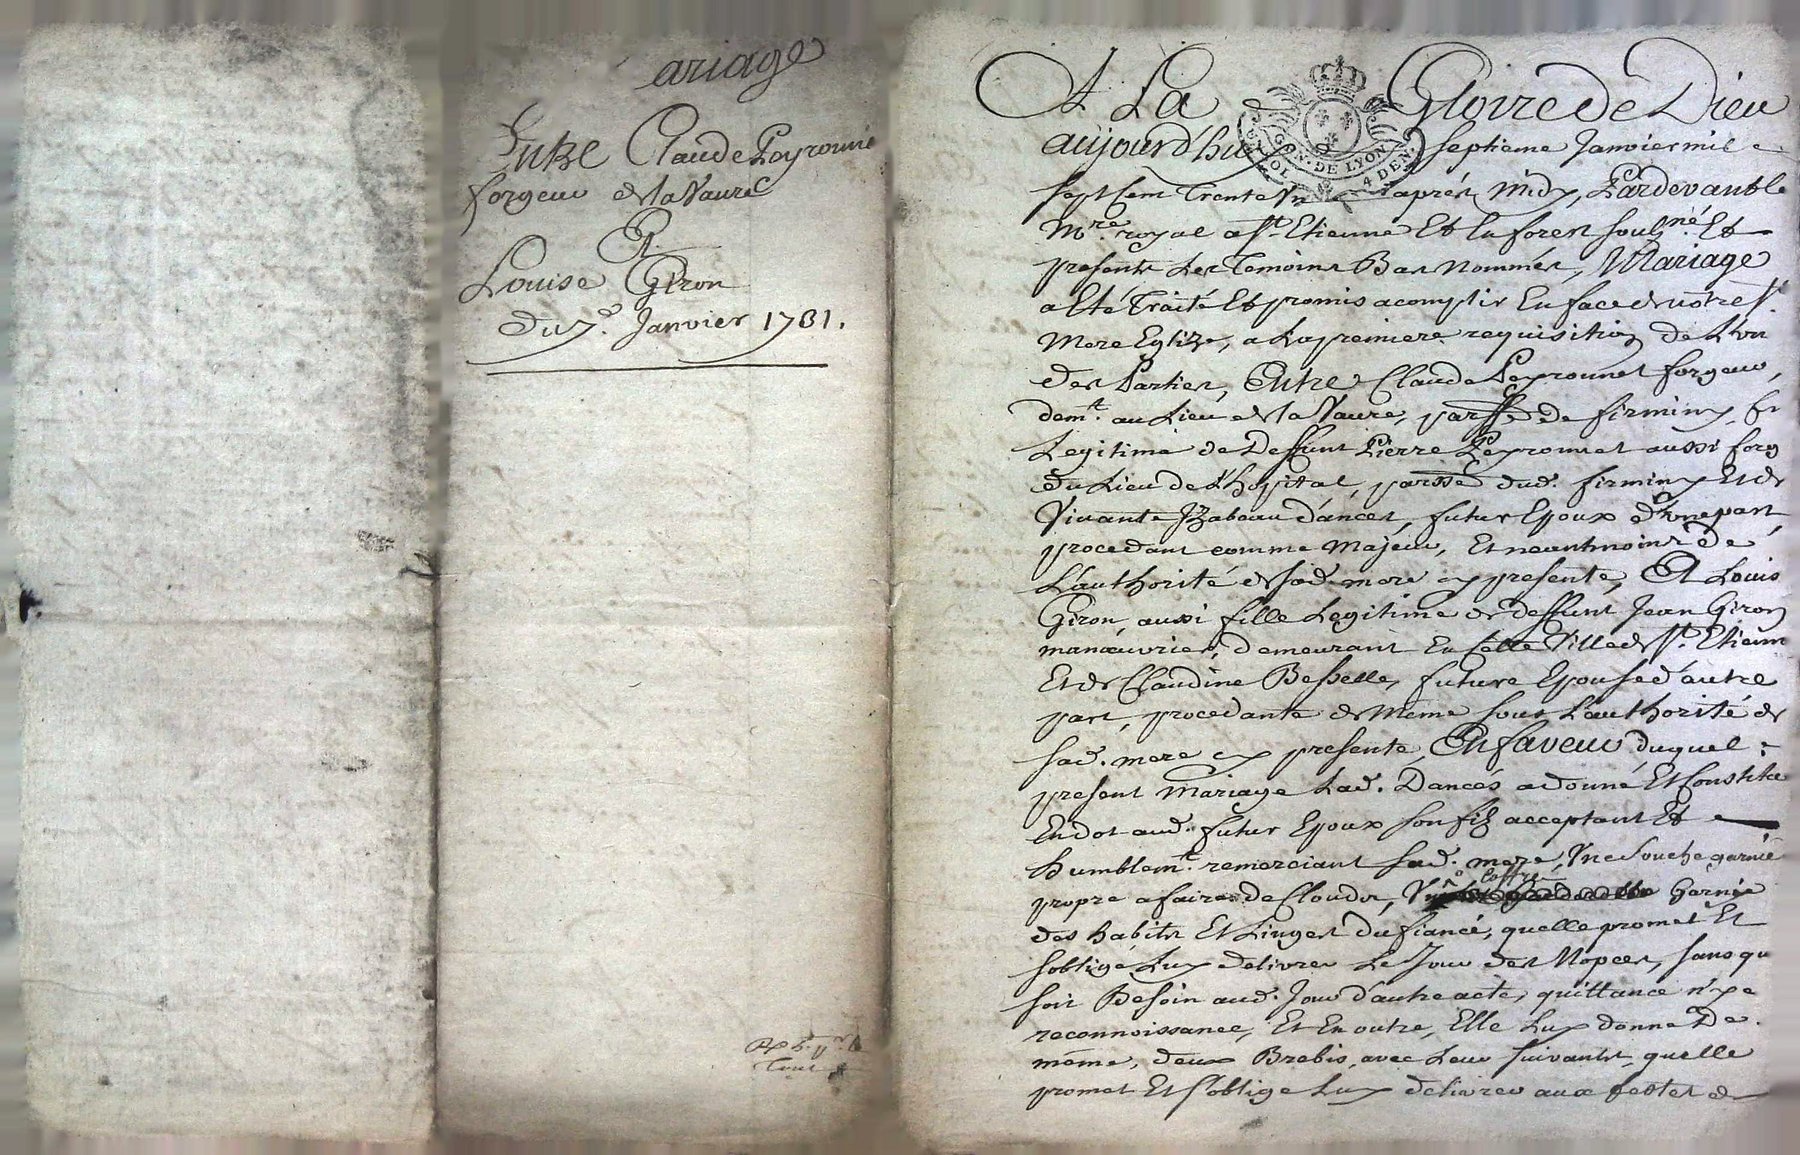 ariage
Entre Claude Peyronne
forgeur de la Vaure
Et
Louise Giron
Du 7.e Janvier 1731.
A La Gloire de Dieu
aujourd'huy septieme Janvier mil
sept Cent Trente Vn apres midy, Pardevant le
Nre royal a St Etienne Et En forest soubsné Et
presents Les Temoins Bas Nommés, Mariage
a Eté Traité Et promis acomplir En face de notre St
Mere Eglize, a La premiere requisition de L'vn
des Parties, Entre Claude Peyronnet forgeur,
demt au Lieu de la Vaure, parsse de firminy, fi
Legitime de Deffunt Pierre Peyronnet aussi forg
du Lieu de L'hopital, parsse dud. firminy Et de
Vivante Izabeau dances, futur Epoux d'vne part,
procedant comme Majeur, Et neantmoins de
L'authorité de sad. mere cy presente, Et Louis
Giron, aussi fille Legitime de deffunt Jean Giron
manœuvrier, demeurant En Cette Ville de St Etienn
Et de Claudine Besselle, future Epouse d'autre
part, procedante de Même sous L'authorité de
sad. mere cy presente, En faveur duquel
present Mariage Lad. Dancés a donné Et Constitue
En dot aud. futur Epoux son filz acceptant Et
humblemt remerciant sad. mere, Vne souche garnie
propre a faire de Cloudes, Vn Coffre Garnie
des habits Et Linges du fiancé, quelle promet Et
soblige Luy delivrer Le Jour des Nopces, sans qu
soit Besoin aud. Jour d'autre acte, quittance n'y
reconnoissance, Et En outre, Elle Luy donne De
même, deux Brebis, avec Leur suivants, quelle
promet Et s'oblige Luy delivrer aux festes de